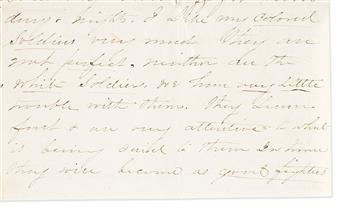 days & nights. I like my Colored
Soldiers very much They are
not perfect. neither are the
White Soldiers. We have very little
trouble with them. They learn
fast & are very attentive to what
is being said to them In time
they will become as good fighters